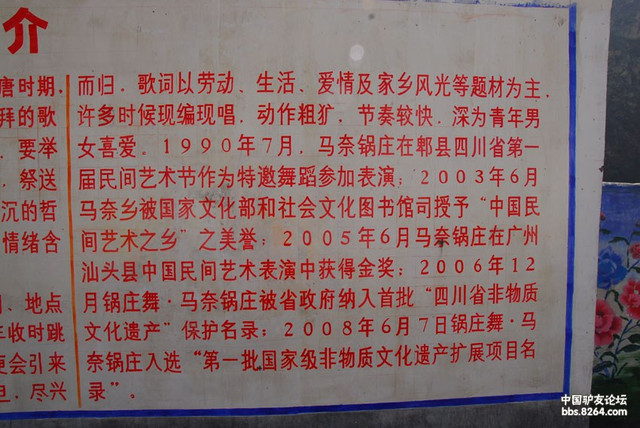 介
唐时期,
拜的歌
、要举
、祭送
沉的哲
情绪含
、地点
收时跳
更会引来
旦,尽兴
而归。歌词以劳动、生活、爱情及家乡风光等题材为主,
许多时候现编现唱,动作粗犷,节奏较快,深为青年男
女喜爱。1990年7月,马奈锅庄在郫县四川省第一
届民间艺术节作为特邀舞蹈参加表演;2003年6月
马奈乡被国家文化部和社会文化图书馆司授予“中国民
间艺术之乡”之美誉;2005年6月马奈锅庄在广州
汕头县中国民间艺术表演中获得金奖;2006年12
月锅庄舞·马奈锅庄被省政府纳入首批“四川省非物质
文化遗产”保护名录;2008年6月7日锅庄舞·马
奈锅庄入选“第一批国家级非物质文化遗产扩展项目名
录”。
中国驴友论坛
bbs.8264.com